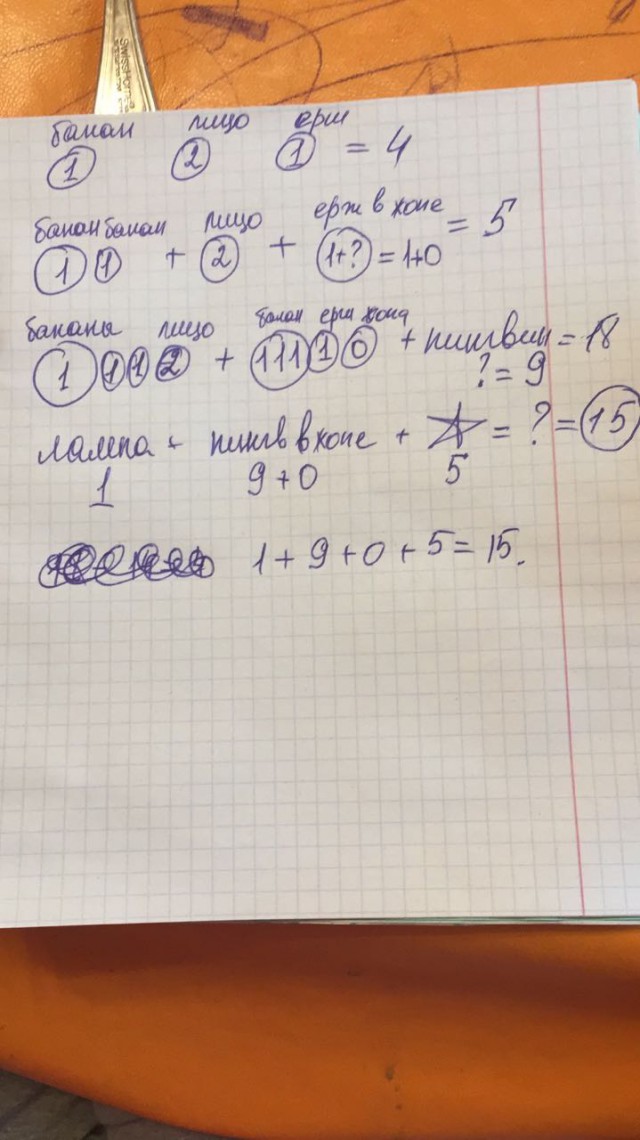 SWISSHOME
банан лицо ерш
1 2 1 = 4
банан банан лицо ерж в хопе
1 1 + 2 + 1+? = 1+0 = 5
бананы лицо банан ерш хопа
1 1 1 2 + 111 1 0 + пингвин = 18
? = 9
лампа + пингв в хопе + = ? = 15
1 9+0 5
1 + 9 + 0 + 5 = 15.